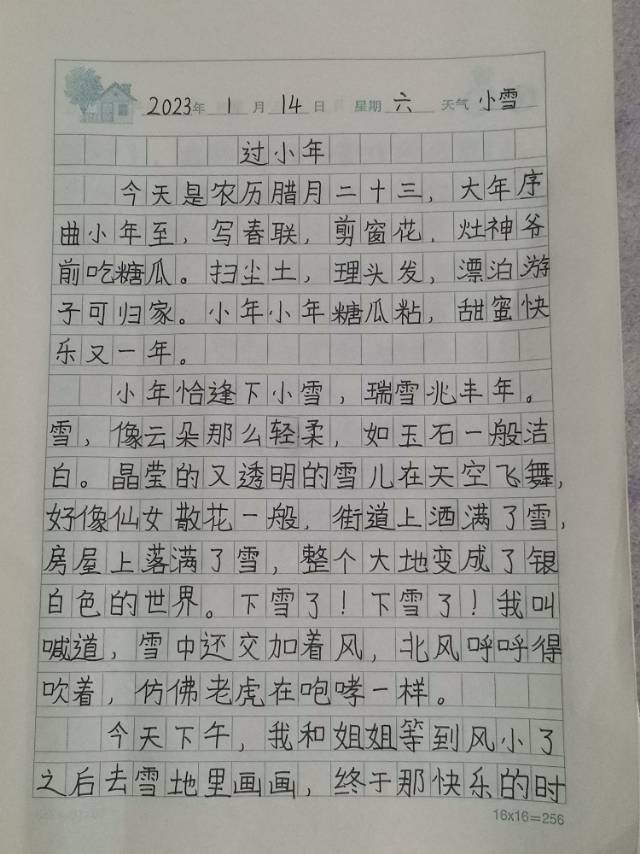 2023年 1月 14日 星期 六 天气 小雪
过小年
今天是农历腊月二十三，大年序
曲小年至，写春联，剪窗花，灶神爷
前吃糖瓜。扫尘土，理头发，漂泊游
子可归家。小年小年糖瓜粘，甜蜜快
乐又一年。
小年恰逢下小雪，瑞雪兆丰年。
雪，像云朵那么轻柔，如玉石一般洁
白。晶莹的又透明的雪儿在天空飞舞，
好像仙女散花一般，街道上洒满了雪，
房屋上落满了雪，整个大地变成了银
白色的世界。下雪了！下雪了！我叫
喊道，雪中还交加着风，北风呼呼得
吹着，仿佛老虎在咆哮一样。
今天下午，我和姐姐等到风小了
之后去雪地里画画，终于那快乐的时
16x16=256